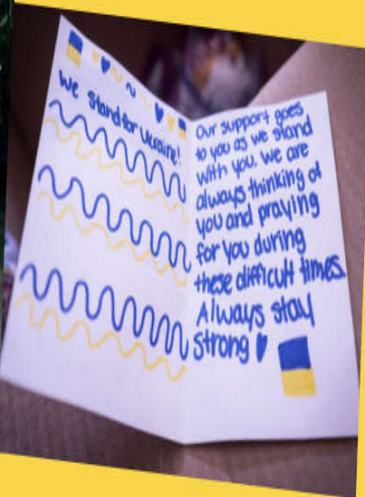 We Stand for Ukraine!
Our support goes
to you as we stand
with you. We are
always thinking of
you and praying
for you during
these difficult times.
Always stay
strong